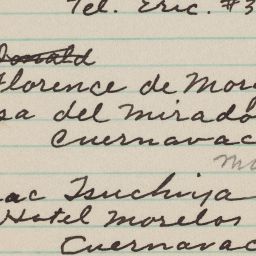 Tel. Eric. #3
Donald
Florence de Mor
sa del Mirado
Cuernavac
ac Tsuchiya
Hotel Morelos
Cuernavac